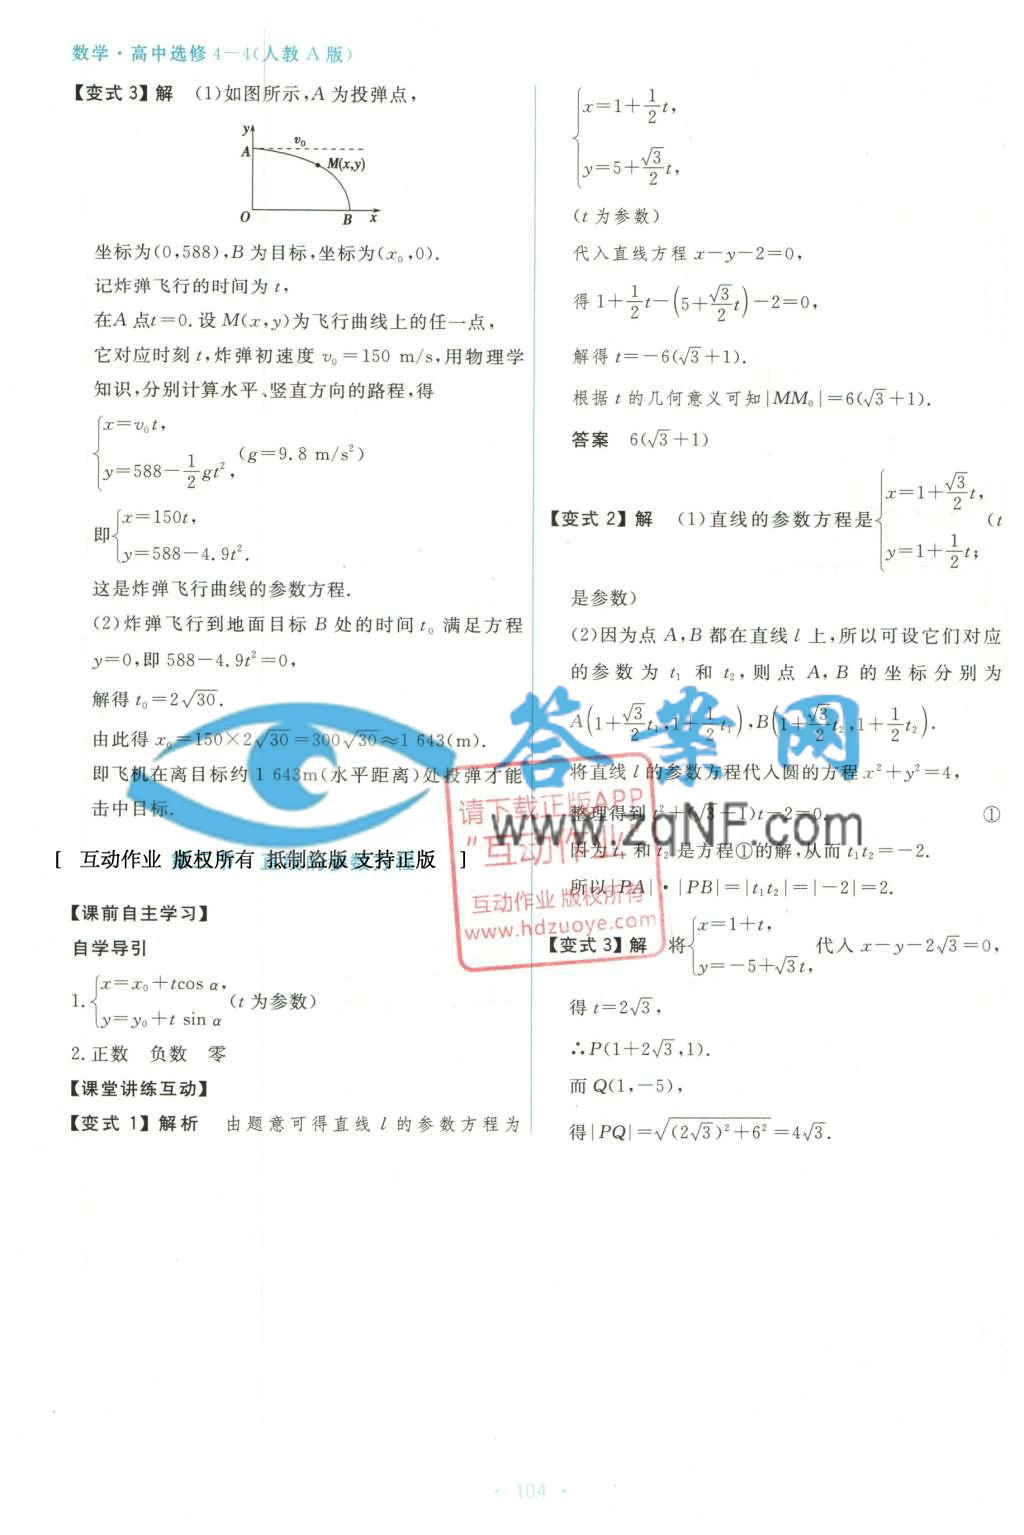 数学·高中选修4-4(人教A版)
【变式3】解 (1)如图所示,A为投弹点,
y
A
v₀
M(x,y)
O
B
x
坐标为(0,588),B为目标,坐标为(x₀,0).
记炸弹飞行的时间为t,
在A点t=0.设M(x,y)为飞行曲线上的任一点,
它对应时刻t,炸弹初速度v₀=150 m/s,用物理学
知识,分别计算水平、竖直方向的路程,得
{x=v₀t,
y=588-1/2gt², (g=9.8 m/s²)
即{x=150t,
y=588-4.9t².
这是炸弹飞行曲线的参数方程.
(2)炸弹飞行到地面目标B处的时间t₀满足方程
y=0,即588-4.9t²=0,
解得t₀=2√30.
由此得x₀=150×2√30=300√30≈1 643(m).
即飞机在离目标约1 643m(水平距离)处投弹才能
击中目标.
[ 互动作业 版权所有 抵制盗版 支持正版 ]
直线的参数方程
【课前自主学习】
自学导引
1.{x=x₀+tcos α,
y=y₀+t sin α (t为参数)
2.正数 负数 零
【课堂讲练互动】
【变式1】解析 由题意可得直线l的参数方程为
{x=1+1/2t,
y=5+√3/2t,
(t为参数)
代入直线方程x-y-2=0,
得1+1/2t-(5+√3/2t)-2=0,
解得t=-6(√3+1).
根据t的几何意义可知|MM₀|=6(√3+1).
答案 6(√3+1)
【变式2】解 (1)直线的参数方程是{x=1+√3/2t,
y=1+1/2t; (t
是参数)
(2)因为点A,B都在直线l上,所以可设它们对应
的参数为t₁和t₂,则点A,B的坐标分别为
A(1+√3/2t₁,1+1/2t₁),B(1+√3/2t₂,1+1/2t₂).
将直线l的参数方程代入圆的方程x²+y²=4,
整理得到t²+(√3+1)t-2=0 ①
因为t₁和t₂是方程①的解,从而t₁t₂=-2.
所以|PA|·|PB|=|t₁t₂|=|-2|=2.
【变式3】解 将{x=1+t,
y=-5+√3t, 代入x-y-2√3=0,
得t=2√3,
∴P(1+2√3,1).
而Q(1,-5),
得|PQ|=√((2√3)²+6²)=4√3.
答案网
www.zqNF.com
请下载正版APP
"互动作业"
互动作业 版权所有
www.hdzuoye.com
· 104 ·